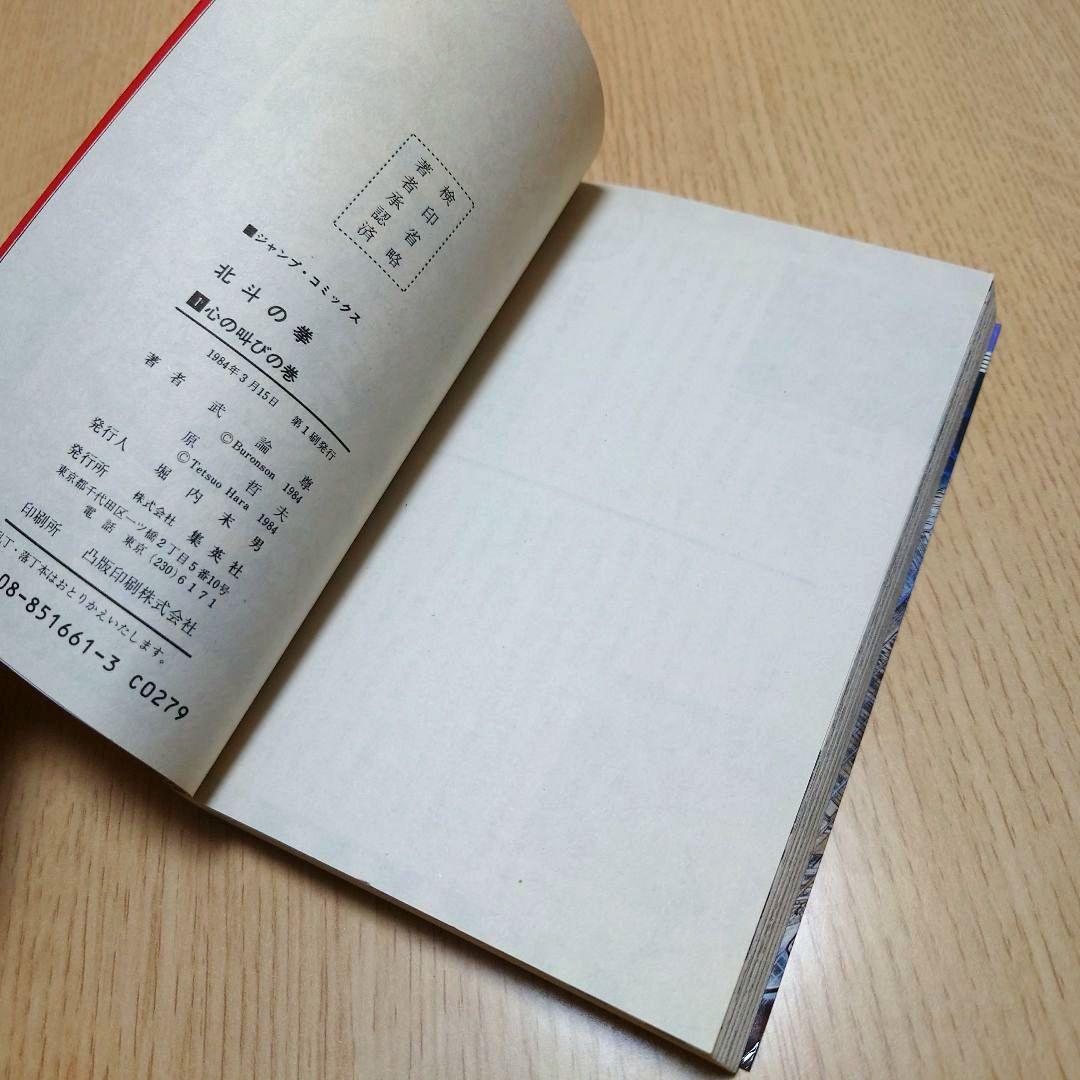 検印省略
著者承認済
■ジャンプ・コミックス
北斗の拳
1心の叫びの巻
1984年3月15日 第1刷発行
著者 武論尊
©Buronson 1984
原哲夫
©Tetsuo Hara 1984
発行人 堀内末男
発行所 株式会社 集英社
東京都千代田区一ツ橋2丁目5番10号
電話 東京 (230) 6171
印刷所 凸版印刷株式会社
丁・落丁本はおとりかえいたします。
08-851661-3 C0279